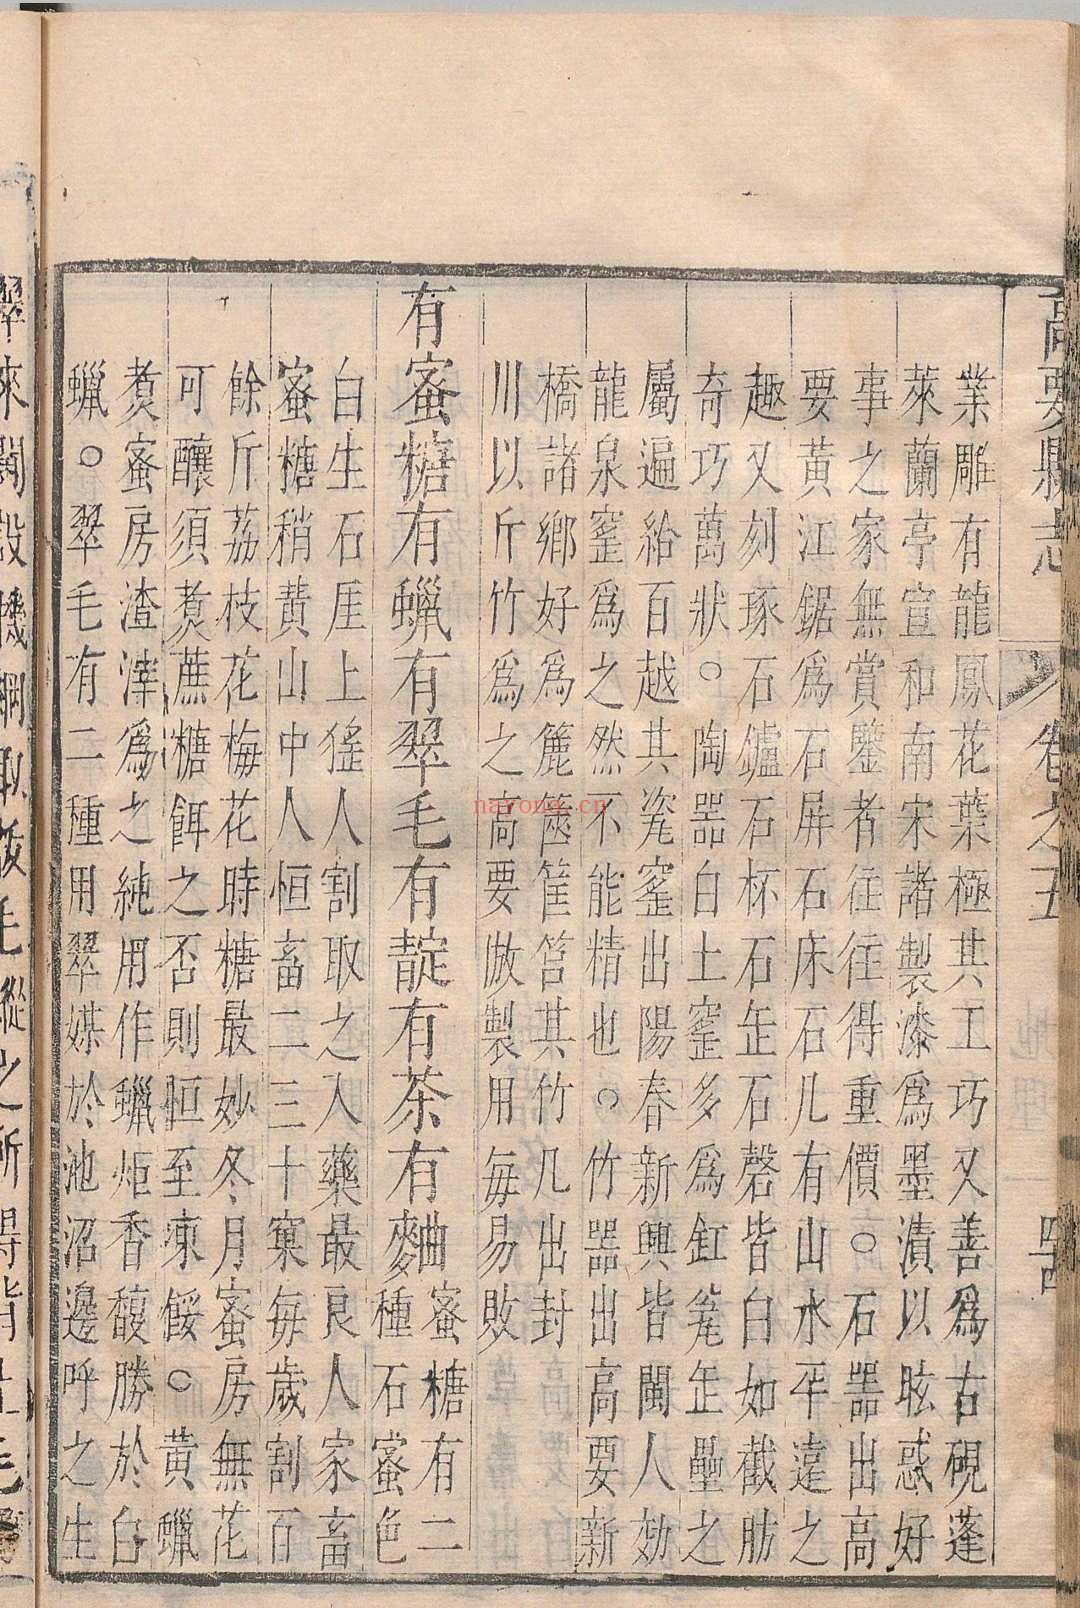 高要縣志
卷之五
四古
業雕有龍鳳花葉極其工巧又善爲古硯蓬
萊蘭亭宣和南宋諸製漆爲墨漬以眩惑好
事之家無賞鑒者往往得重價○石器出高
要黃江鋸爲石屏石床石几有山水平遠之
趣又刻琢石鑪石杯石缶石磬皆白如截肪
奇巧萬狀○陶器白土窰多爲缸甕缶罍之
屬遍給百越其瓷窰出陽春新興皆閩人効
龍泉窰爲之然不能精也○竹器出高要新
橋諸鄉好為簏篋筐筥其竹几出封
川以斤竹爲之高要倣製用每易敗
有蜜糖有蠟有翠毛有靛有茶有麯蜜糖有二
種石蜜色
白生石厓上猺人割取之入藥最良人家畜
蜜糖稍黃山中人恒畜二三十窠每歲割百
餘斤荔枝花梅花時糖最妙冬月蜜房無花
可釀須煑蔗糖餌之否則恒至凍餒○黃蠟
煑蜜房渣滓爲之純用作蠟炬香馥勝於白
蠟○翠毛有二種用翠媒於池沼邊呼之生
nayona.cn